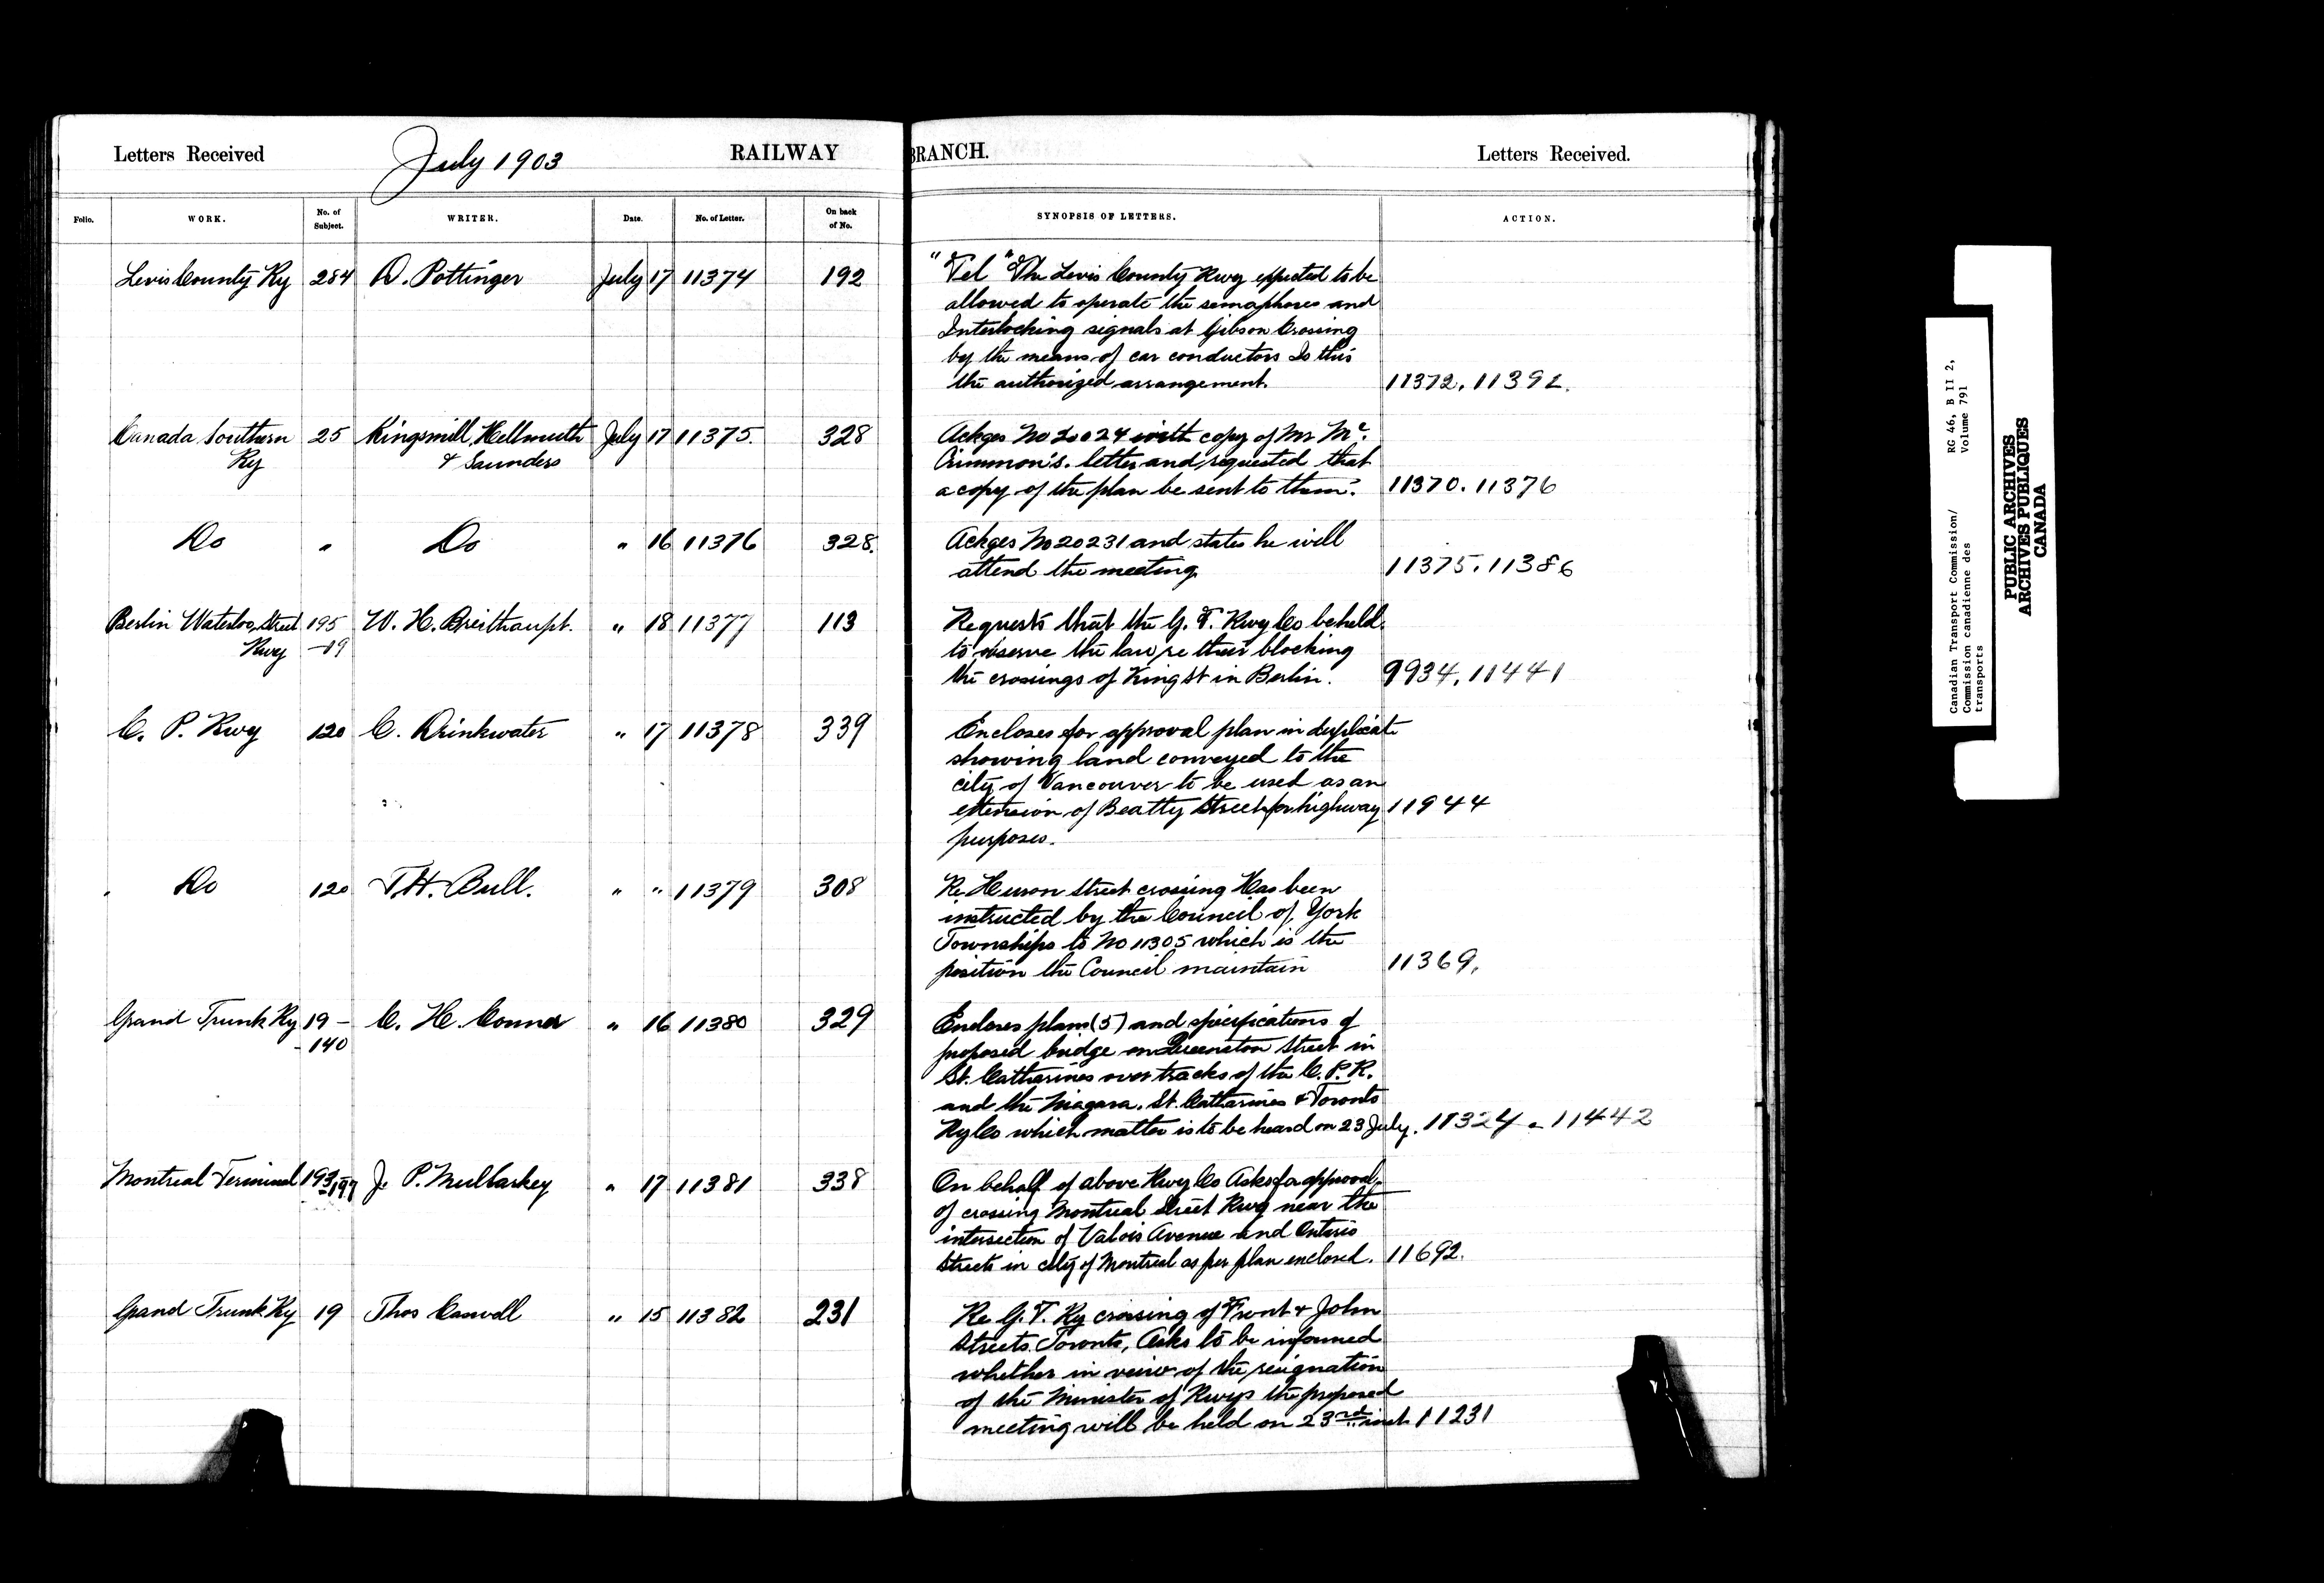 Letters Received July 1903 RAILWAY BRANCH. Letters Received.
Folio. WORK. No. of Subject. WRITER. Date. No. of Letter. On back of No. SYNOPSIS OF LETTERS. ACTION.
Levis County Ry 284 D. Pottinger July 17 11374 192
"Tel" The Levis County Rwy expected to be
allowed to operate the semaphores and
Interlocking signals at Gibson Crossing
by the means of car conductors Is this
the authorized arrangement. 11372. 11392.
Canada Southern 25 Kingsmill, Hellmuth July 17 11375. 328
Ry & Saunders
Ackges No 20024 with copy of Mr Mc.
Crimmon's. letter and requested that
a copy of the plan be sent to them. 11370. 11376
Do " Do " 16 11376 328.
Ackges No 20231 and states he will
attend the meeting 11375. 11386
Berlin Waterloo Street 195 W. H. Breithaupt. " 18 11377 113
Rwy -19
Requests that the G. T. Rwy Co be held
to observe the law re their blocking
the crossings of King St in Berlin. 9934. 11441
C. P. Rwy 120 C. Drinkwater " 17 11378 339
Encloses for approval plan in duplicate
showing land conveyed to the
city of Vancouver to be used as an
extension of Beatty Street for highway 11944
purposes.
Do 120 T.H. Bull. " " 11379 308
Re Huron Street crossing Has been
instructed by the Council of York
Townships to No 11305 which is the
position the Council maintain 11369.
Grand Trunk Ry 19 - C. H. Connor " 16 11380 329
- 140
Encloses plans (5) and specifications of
proposed bridge on Queenston Street in
St. Catherines over tracks of the C. P. R.
and the Niagara. St. Catharines & Toronto
Ry Co which matter is to be heard on 23 July. 11324 - 11442
Montreal Terminal 193-197 J. P. Mullarkey " 17 11381 338
On behalf of above Rwy Co Asks for approval
of crossing Montreal Street Rwy near the
intersection of Valois Avenue and Ontario
Streets in city of Montreal as per plan enclosed. 11692.
Grand Trunk Ry 19 Thos Caswell " 15 11382 231
Re G. T. Ry crossing of Front & John
Streets Toronto, Asks to be informed
whether in veiw of the resignation
of the Minister of Rwys the proposed
meeting will be held on 23rd inst 11231
Canadian Transport Commission/ RG 46, B II 2,
Commission canadienne des Volume 791
transports
PUBLIC ARCHIVES
ARCHIVES PUBLIQUES
CANADA